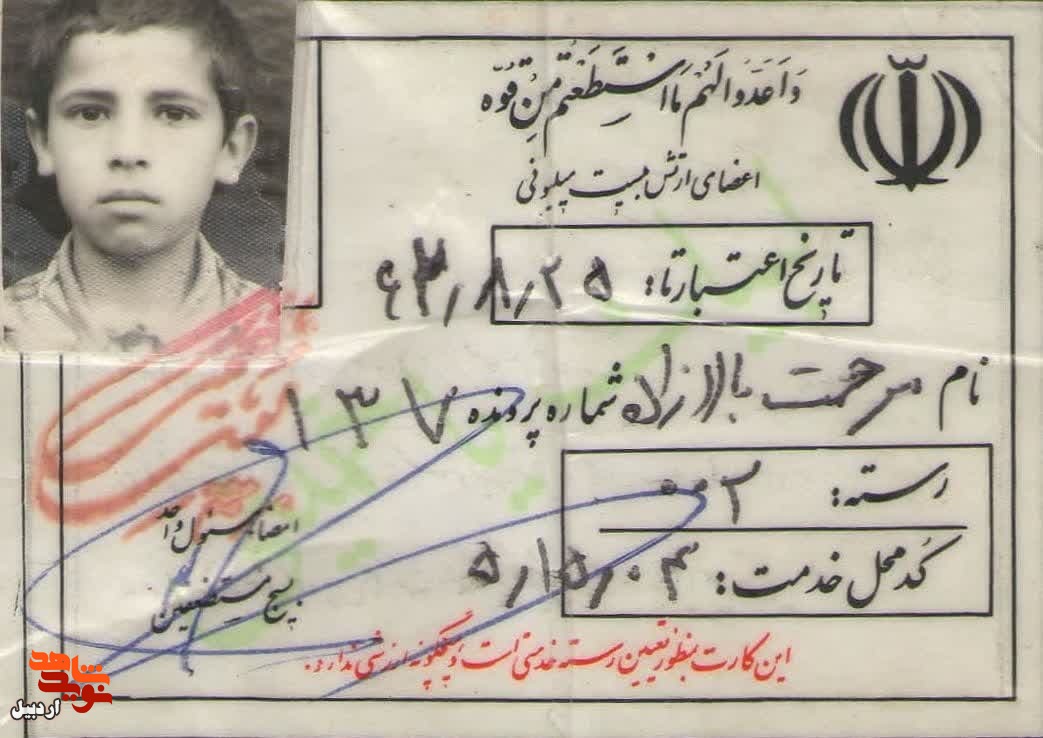 وَاَعَدّوا لَهُم مَا اسْتَطَعْتُم مِن قُوّه
اعضای ارتش بیست میلیونی
تاریخ اعتبار تا: ۶۳/۸/۲۵
نام مرحمت بالازاده شماره پرونده ۱۳۷
رسته: ۰۰۲
کد محل خدمت: ۵/۱۵/۰۴
امضاء مسئول واحد
بسیج مستضعفین
این کارت بمنظور تعیین رسته خدمتی است و هیچگونه ارزشی ندارد.
نوید شاهد
اردبیل